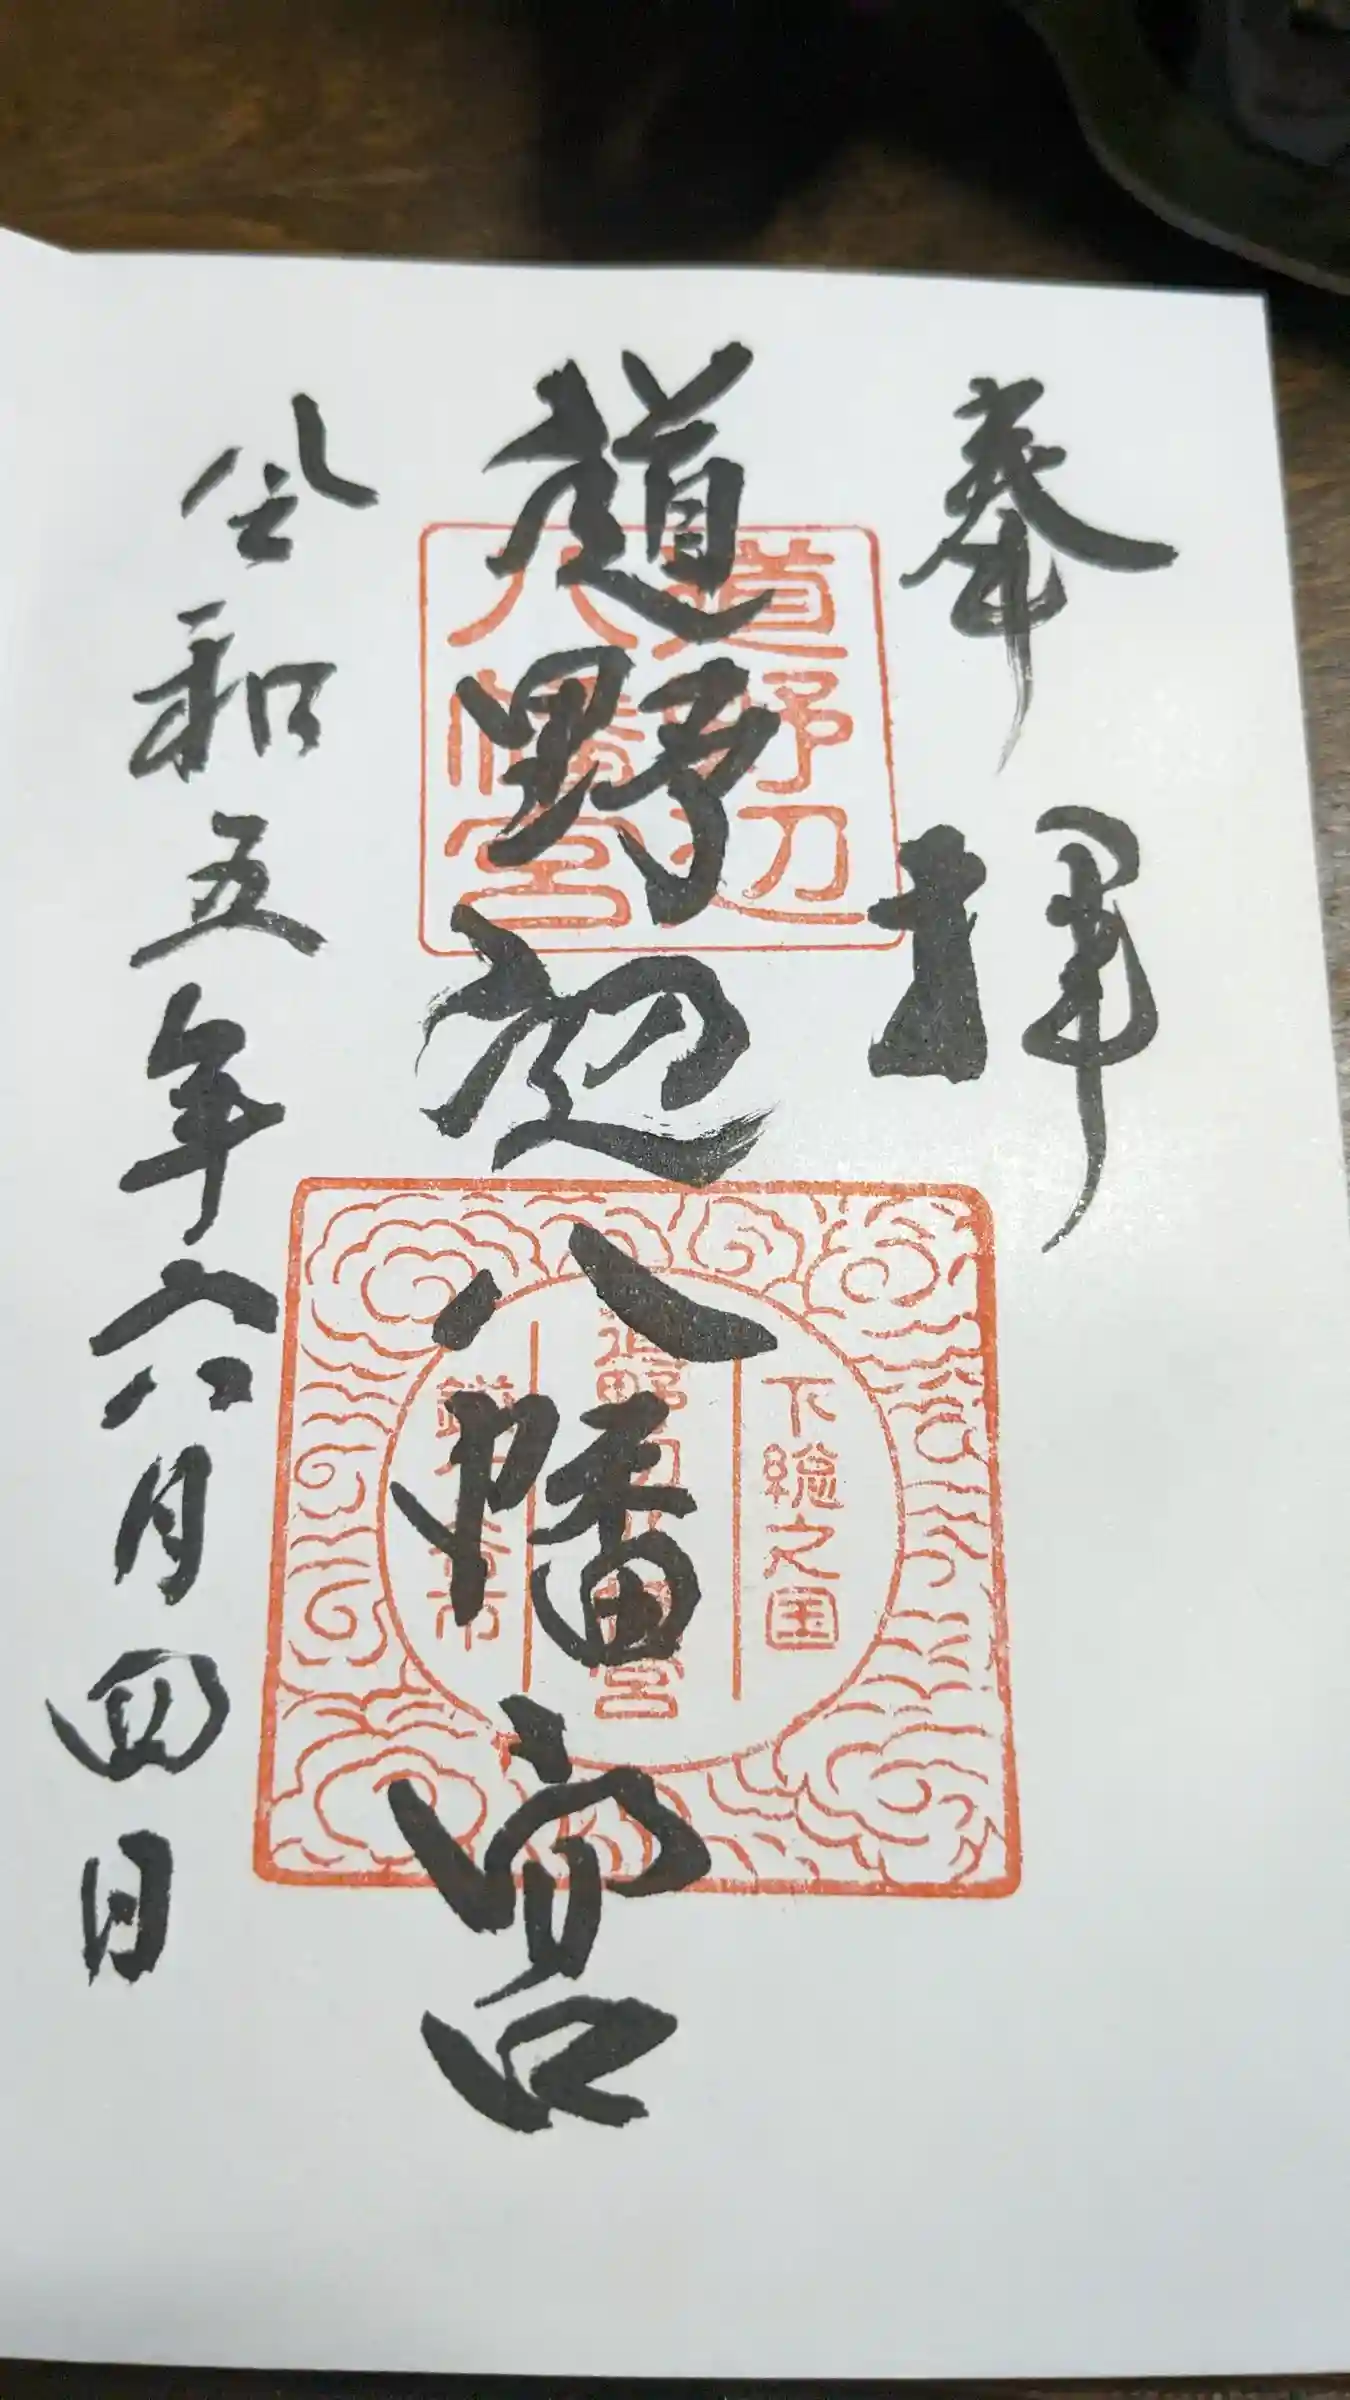 奉拝
道野辺八幡宮
令和五年六月四日
道野辺
八幡宮
下総之国
道野辺八幡宮